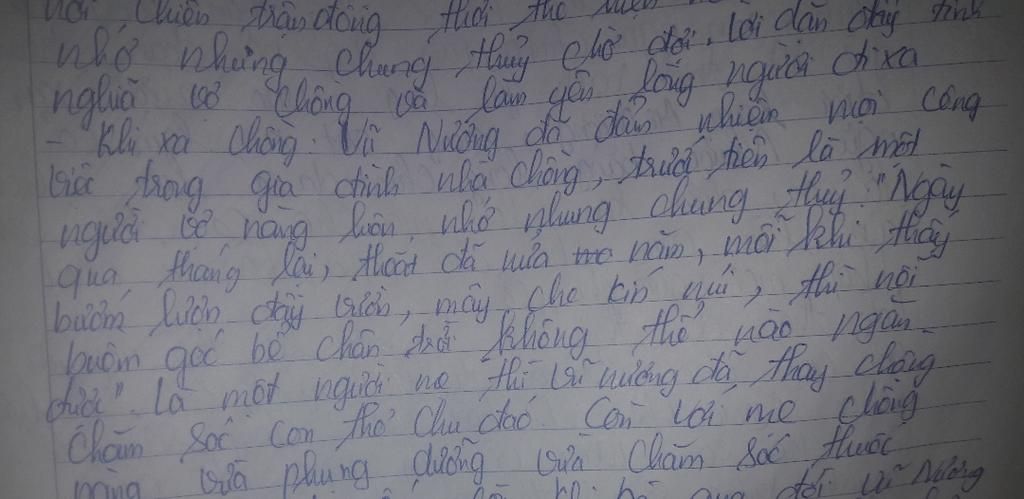 nơi chiến trận đông thời thể hiện
nhớ nhung chung thuỷ chờ đợi. lời dặn đầy tình
nghĩa vợ chồng và làm yên lòng người đi xa
- Khi xa chồng. Vũ Nương đã đảm nhiệm mọi công
việc trong gia đình nhà chồng, trước tiên là một
người vợ nàng luôn nhớ nhung chung thuỷ. "Ngày
qua tháng lại, thoát đã nửa năm, mỗi khi thấy
bướm lượn đầy vườn, mây che kín núi, thì nỗi
buồm góc bể chân trời không thể nào ngăn
được". Là một người mẹ thì vũ nương đã thay chồng
Chăm sóc con thơ chu đáo. Còn với mẹ chồng
nàng vừa phụng dưỡng vừa chăm sóc thuốc
đối vũ Nương